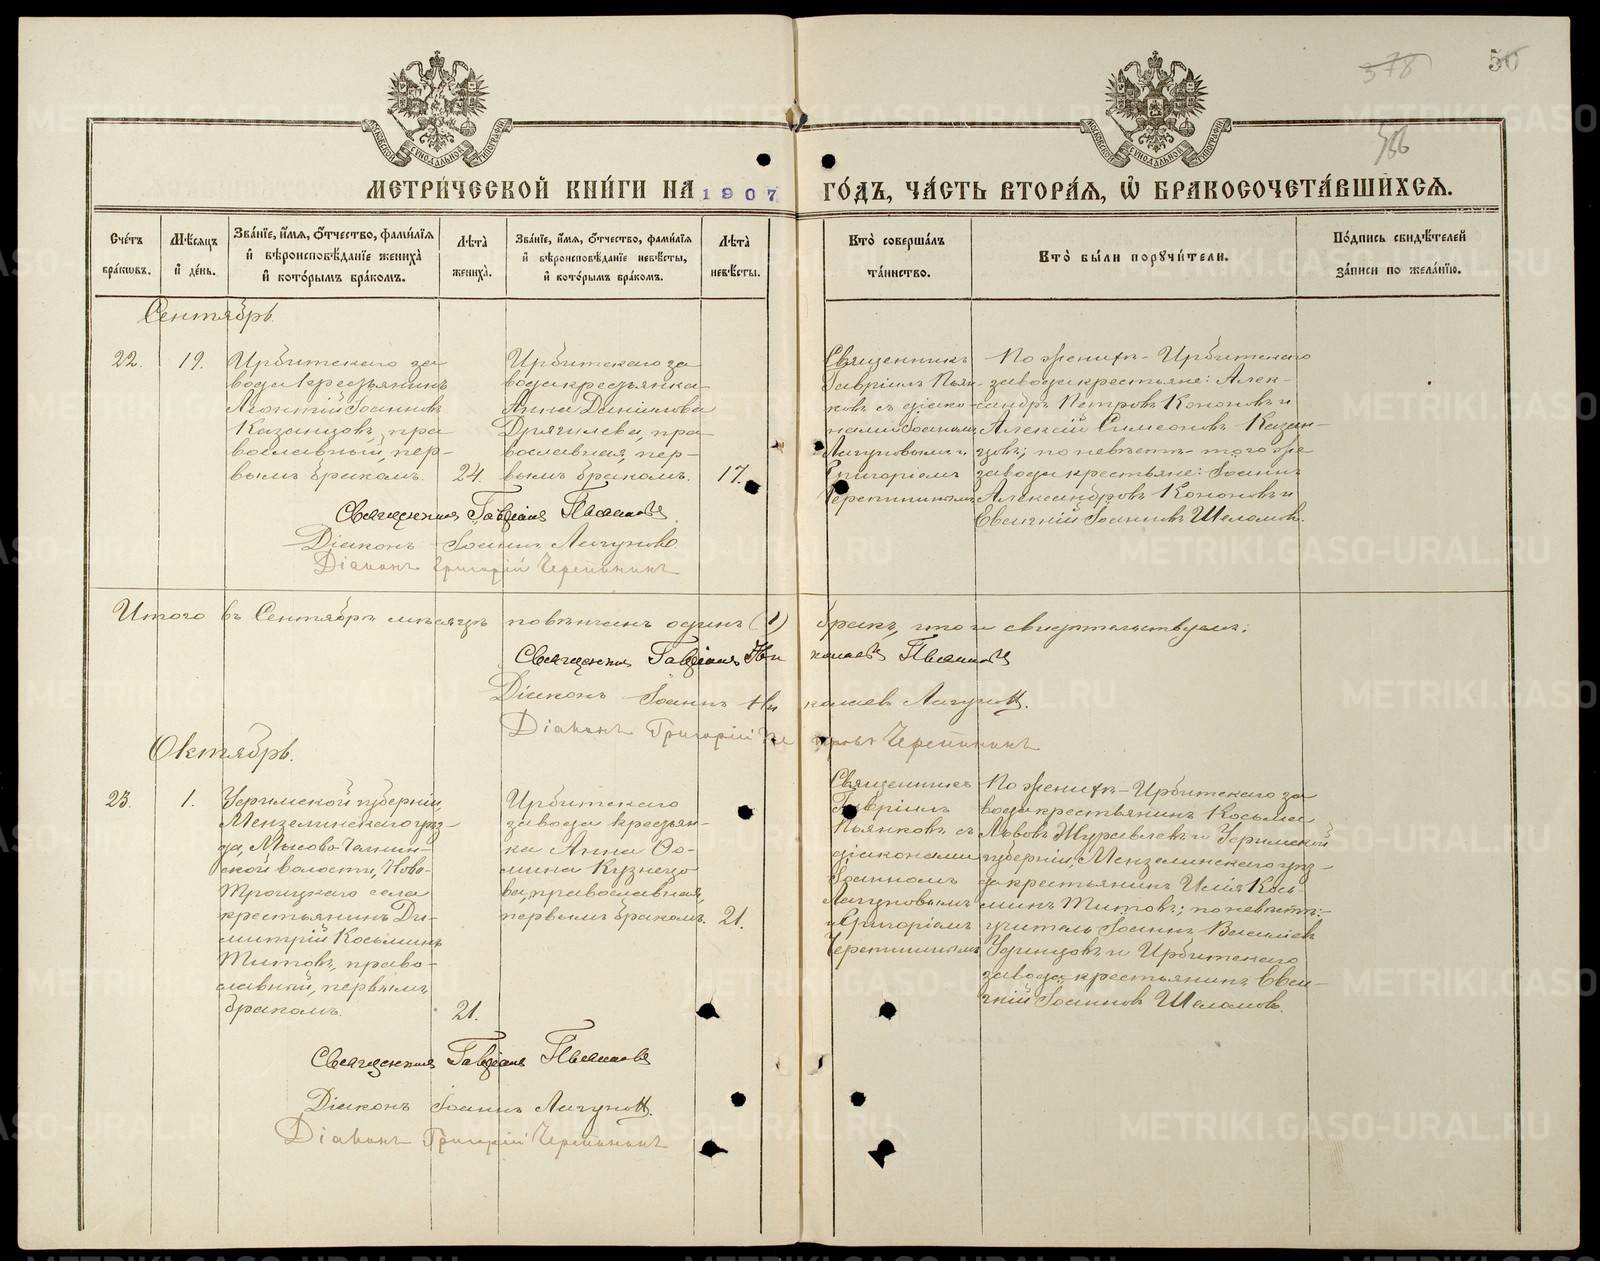 578
50
566
МОСКОВСКОЙ СѴНОДАЛЬНОЙ ТИПОГРАФІИ
МОСКОВСКОЙ СѴНОДАЛЬНОЙ ТИПОГРАФІИ
МЕТРИ́ЧЕСКОЙ КНИ́ГИ НА 1907 ГО́ДЪ, ЧА́СТЬ ВТОРА́Я, Ѽ БРАКОСОЧЕТА́ВШИХСЯ.
Сче́тъ бра́ковъ.
Мѣ́сяцъ и́ де́нь.
Зва́нїе, и́мя, о́тчество, фами́лїя и́ вѣроисповѣ́данїе жениха̀ и́ кото́рымъ бра́комъ.
Лѣ́та жениха̀.
Зва́нїе, и́мя, о́тчество, фами́лїя и́ вѣроисповѣ́данїе невѣ́сты, и́ кото́рымъ бра́комъ.
Лѣ́та невѣ́сты.
Кто̀ соверша́лъ та́инство.
Кто̀ бы́ли поручи́тели.
По́дпись свидѣ́телей за́писи по жела́нїю.
Сентябрь.
22.
19.
Ирбитскаго за-
вода крестьянинъ
Леонтій Іоанновъ
Казанцовъ, пра-
вославный, пер-
вымъ бракомъ.
24.
Ирбитскаго за-
вода крестьянка
Анна Данилова
Дрягилева, пра-
вославная, пер-
вымъ бракомъ.
17.
Священникъ
Гавріилъ Пьян-
ковъ съ діако-
нами Іоанномъ
Лагуновымъ и
Григоріемъ
Черепнинымъ
По женихѣ - Ирбитскаго
завода крестьяне: Алек-
сандръ Петровъ Кононовъ и
Алексій Симеоновъ Казан-
цовъ; по невѣстѣ - того же
завода крестьяне: Іоаннъ
Александровъ Кононовъ и
Евгеній Іоанновъ Шеломовъ.
Священникъ Гавріилъ Пьянковъ
Діаконъ Іоаннъ Лагуновъ
Діаконъ Григорій Черепнинъ
Итого въ Сентябрѣ мѣсяцѣ повѣнчанъ одинъ (1) бракъ, что и свидѣтельствуемъ:
Священникъ Гавріилъ Николаевъ Пьянковъ
Діаконъ Іоаннъ Николаевъ Лагуновъ.
Діаконъ Григорій Петровъ Черепнинъ
Октябрь.
23.
1.
Уфимской губерніи,
Мензелинскаго уѣз-
да, Мысово-Челнин-
ской волости, Ново-
Троицкаго села
крестьянинъ Ди-
митрій Косьминъ
Титовъ, право-
славный, первымъ
бракомъ.
21.
Ирбитскаго
завода крестьян-
ка Анна Ѳо-
мина Кузнецо-
ва, православная,
первымъ бракомъ.
21.
Священникъ
Гавріилъ
Пьянковъ съ
діаконами
Іоанномъ
Лагуновымъ
и Григоріемъ
Черепнинымъ
По женихѣ - Ирбитскаго за-
вода крестьянинъ Косьма
Львовъ Журавлевъ и Уфимской
губерніи Мензелинскаго уѣз-
да крестьянинъ Илія Кось-
минъ Титовъ; по невѣстѣ:-
учитель Іоаннъ Васильевъ
Удинцовъ и Ирбитскаго
завода крестьянинъ Евге-
ній Іоанновъ Шеломовъ.
Священникъ Гавріилъ Пьянковъ
Діаконъ Іоаннъ Лагуновъ.
Діаконъ Григорій Черепнинъ
METRIKI.GASO-URAL.RU